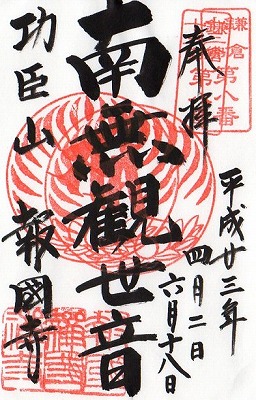 奉拝
鎌倉第十番
平成廿三年
四月二日
六月十八日
南無観世音
功臣山 報國寺